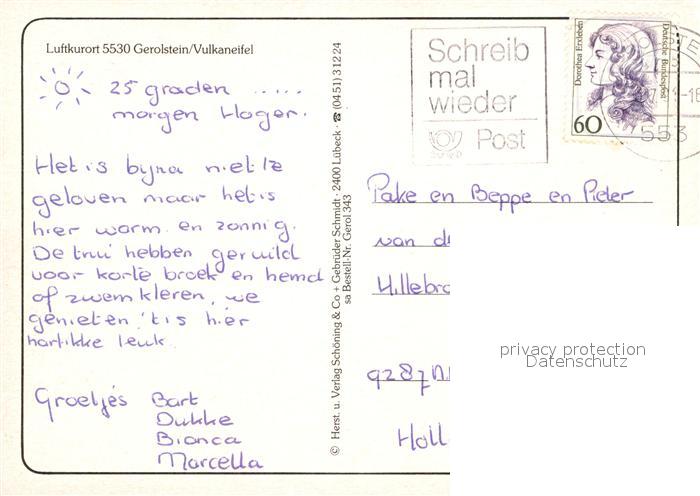 Luftkurort 5530 Gerolstein/Vulkaneifel
25 graden .....
morgen Hoger.
Het is bijna niet te
geloven maar het is
hier warm en zonnig.
De trui hebben geruild
voor korte broek en hemd
of zwemkleren, we
genieten 't is hier
hartikke leuk.
Groetjes Bart
Dukke
Bianca
Marcella
© Herst. u. Verlag Schöning & Co + Gebrüder Schmidt · 2400 Lübeck · ☎ (04 51) 3 12 24
sa Bestell-Nr. Gerol 343
Schreib
mal
wieder
Post
Dorothea Erxleben
Deutsche Bundespost
60
553
Pake en Beppe en Pieter
van d
Hillebr
9287
Holl
privacy protection
Datenschutz